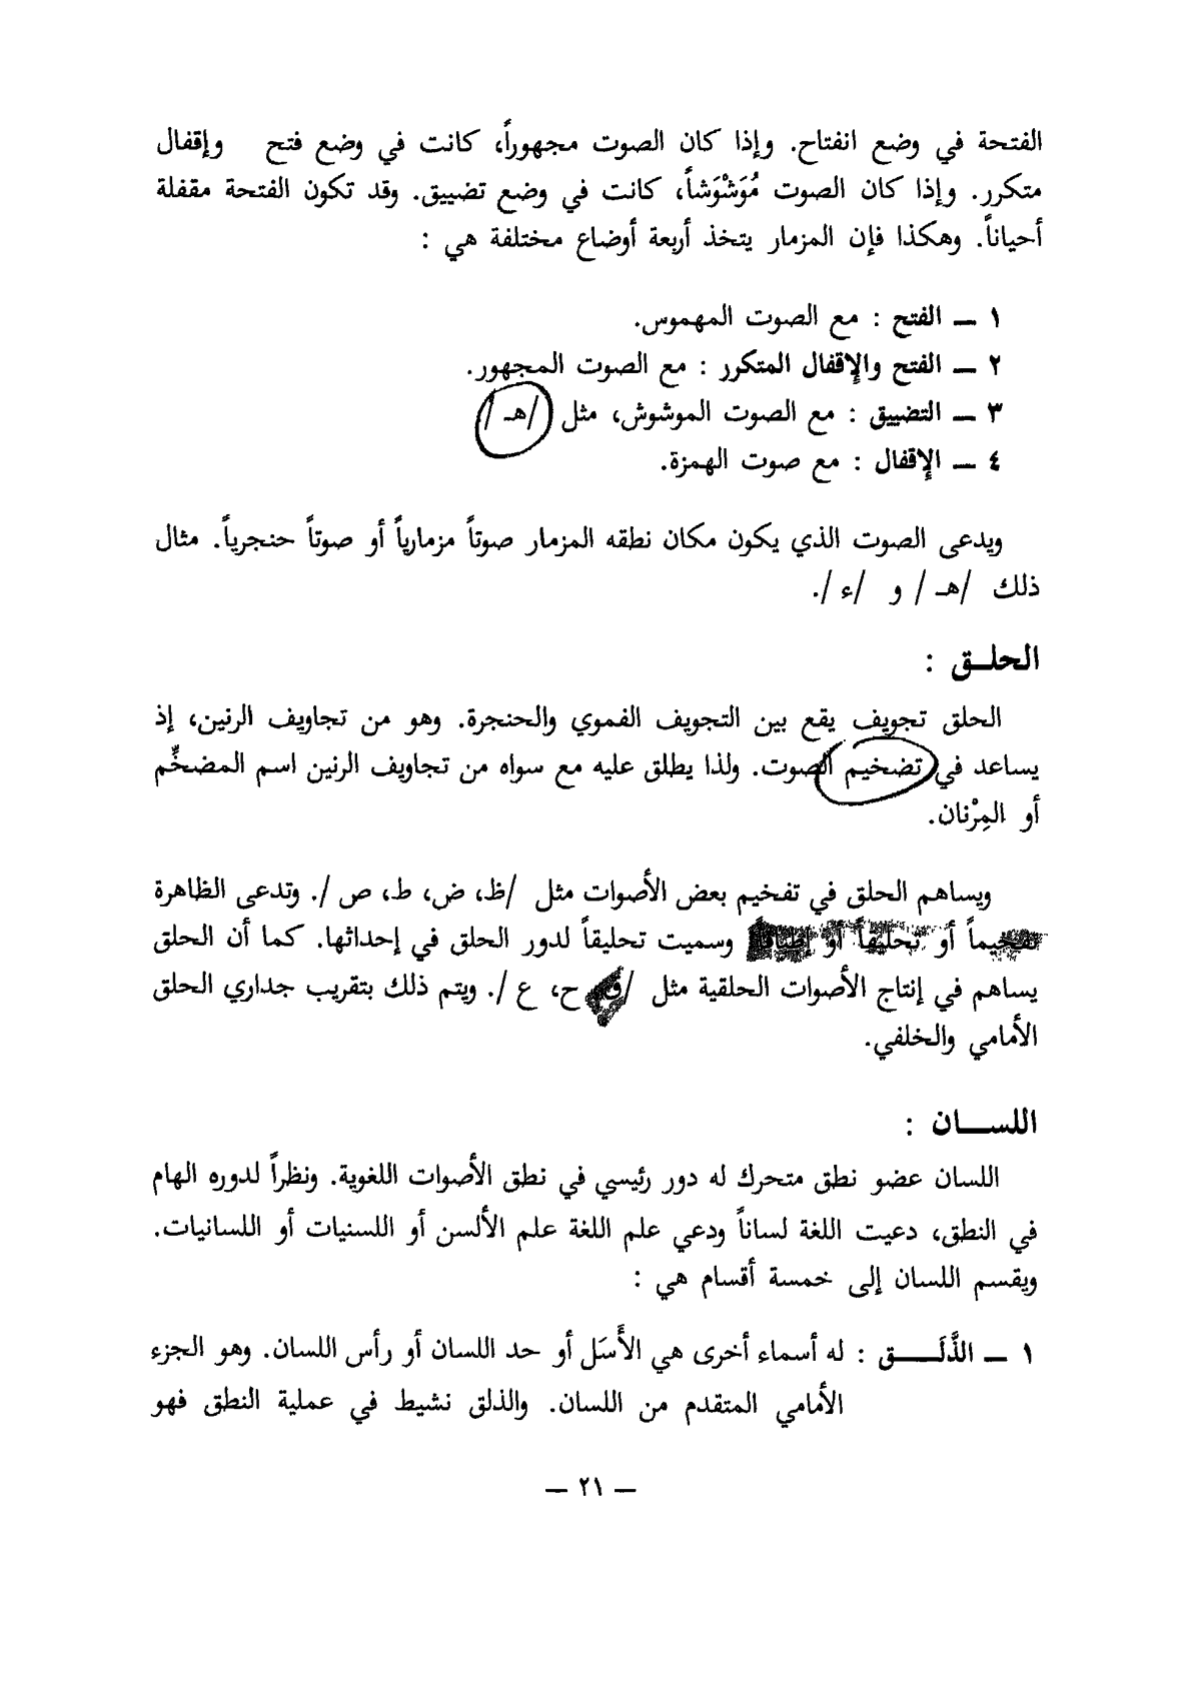 الفتحة في وضع انفتاح. وإذا كان الصوت مجهوراً، كانت في وضع فتح وإقفال
متكرر. وإذا كان الصوت مُوَشْوَشاً، كانت في وضع تضييق. وقد تكون الفتحة مقفلة
أحياناً. وهكذا فإن المزمار يتخذ أربعة أوضاع مختلفة هي :
١ ــ الفتح : مع الصوت المهموس.
٢ ــ الفتح والإقفال المتكرر : مع الصوت المجهور.
٣ ــ التضييق : مع الصوت الموشوش، مثل /هـ /
٤ ــ الإقفال : مع صوت الهمزة.
ويدعى الصوت الذي يكون مكان نطقه المزمار صوتاً مزمارياً أو صوتاً حنجرياً. مثال
ذلك /هـ / و /ء /.
الحلـق :
الحلق تجويف يقع بين التجويف الفموي والحنجرة. وهو من تجاويف الرنين، إذ
يساعد في تضخيم الصوت. ولذا يطلق عليه مع سواه من تجاويف الرنين اسم المضخِّم
أو المِرْنان.
ويساهم الحلق في تفخيم بعض الأصوات مثل /ظ، ض، ط، ص /. وتدعى الظاهرة
تفخيماً أو تحليقاً أو إطباقاً وسميت تحليقاً لدور الحلق في إحداثها. كما أن الحلق
يساهم في إنتاج الأصوات الحلقية مثل / ح، ع /. ويتم ذلك بتقريب جداري الحلق
الأمامي والخلفي.
اللســـان :
اللسان عضو نطق متحرك له دور رئيسي في نطق الأصوات اللغوية. ونظراً لدوره الهام
في النطق، دعيت اللغة لساناً ودعي علم اللغة علم الألسن أو اللسنيات أو اللسانيات.
ويقسم اللسان إلى خمسة أقسام هي :
١ ــ الذَّلَــــق : له أسماء أخرى هي الأَسَل أو حد اللسان أو رأس اللسان. وهو الجزء
الأمامي المتقدم من اللسان. والذلق نشيط في عملية النطق فهو
— ٢١ —